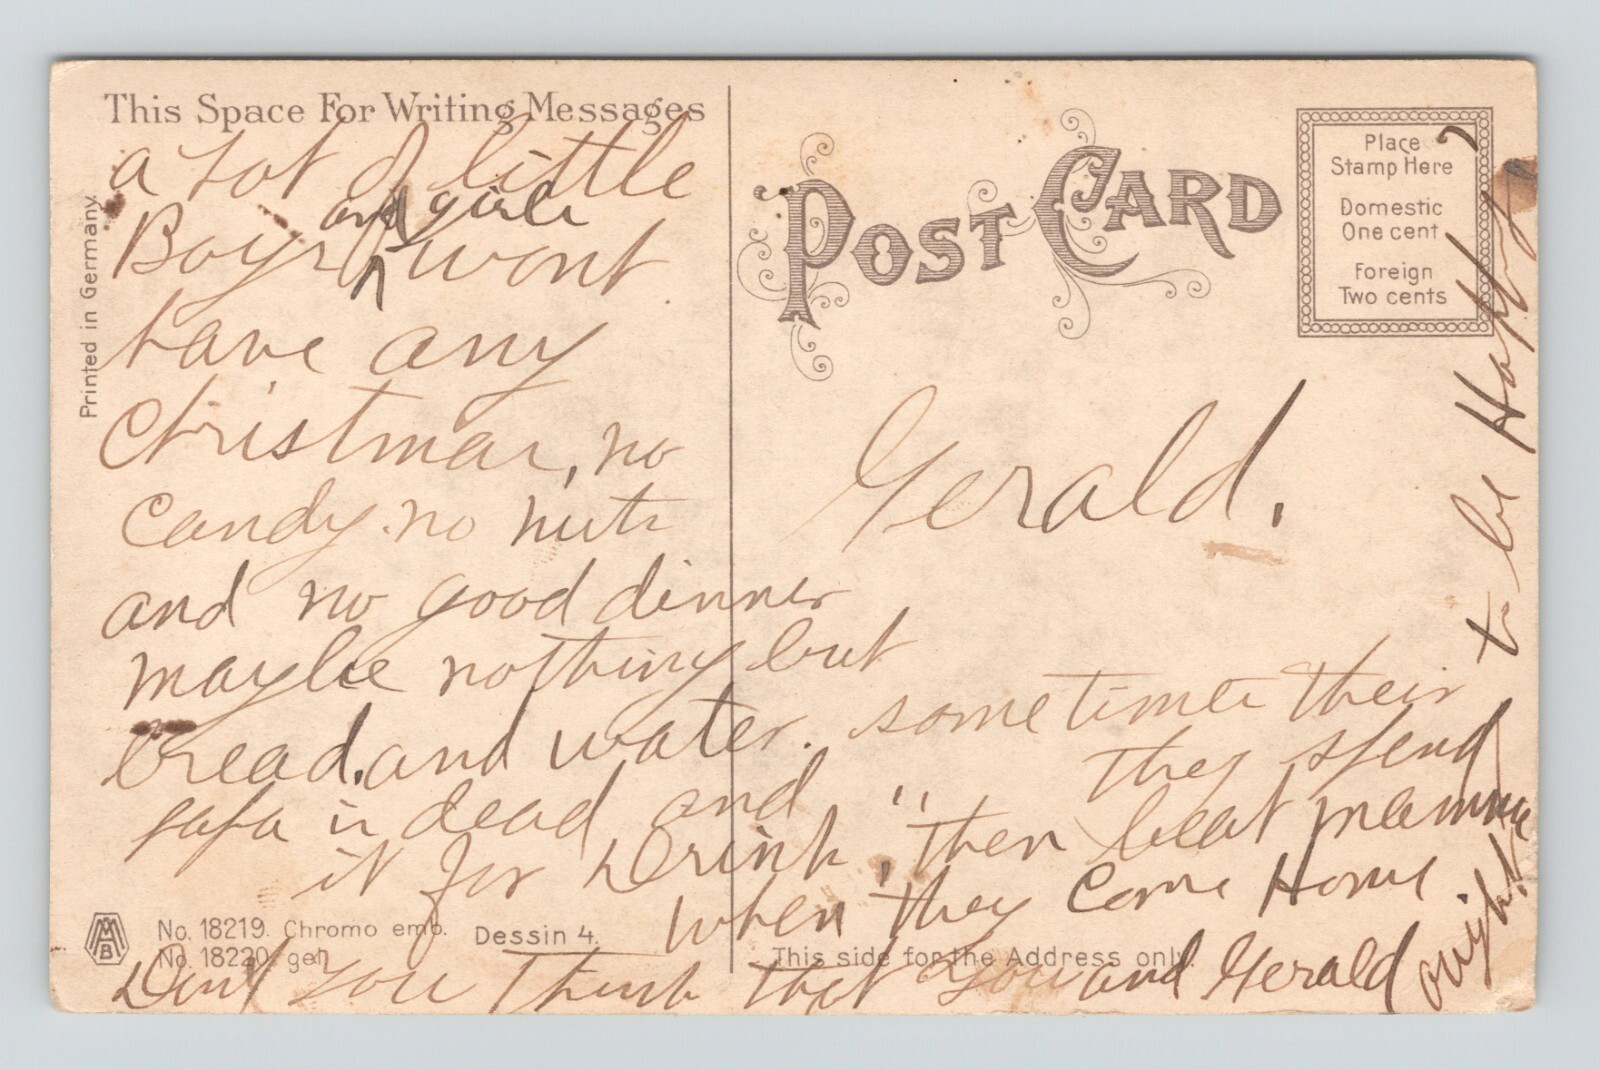 This Space For Writing Messages
a lot of little
and girls
Boys ^ wont
have any
Christmas, no
candy. no nuts
and no good dinner
maybe nothing but
bread. and water. sometimes their
papa is dead and they spend
it for Drink, "then beat mamma
when they come Home
Dont you Think that you and Gerald
ought
to be Happy
Gerald.
POST CARD
Place
Stamp Here
Domestic
One cent
Foreign
Two cents
Printed in Germany.
MMB
No. 18219. Chromo emb.
No. 18220. gel
Dessin 4.
This side for the Address only.